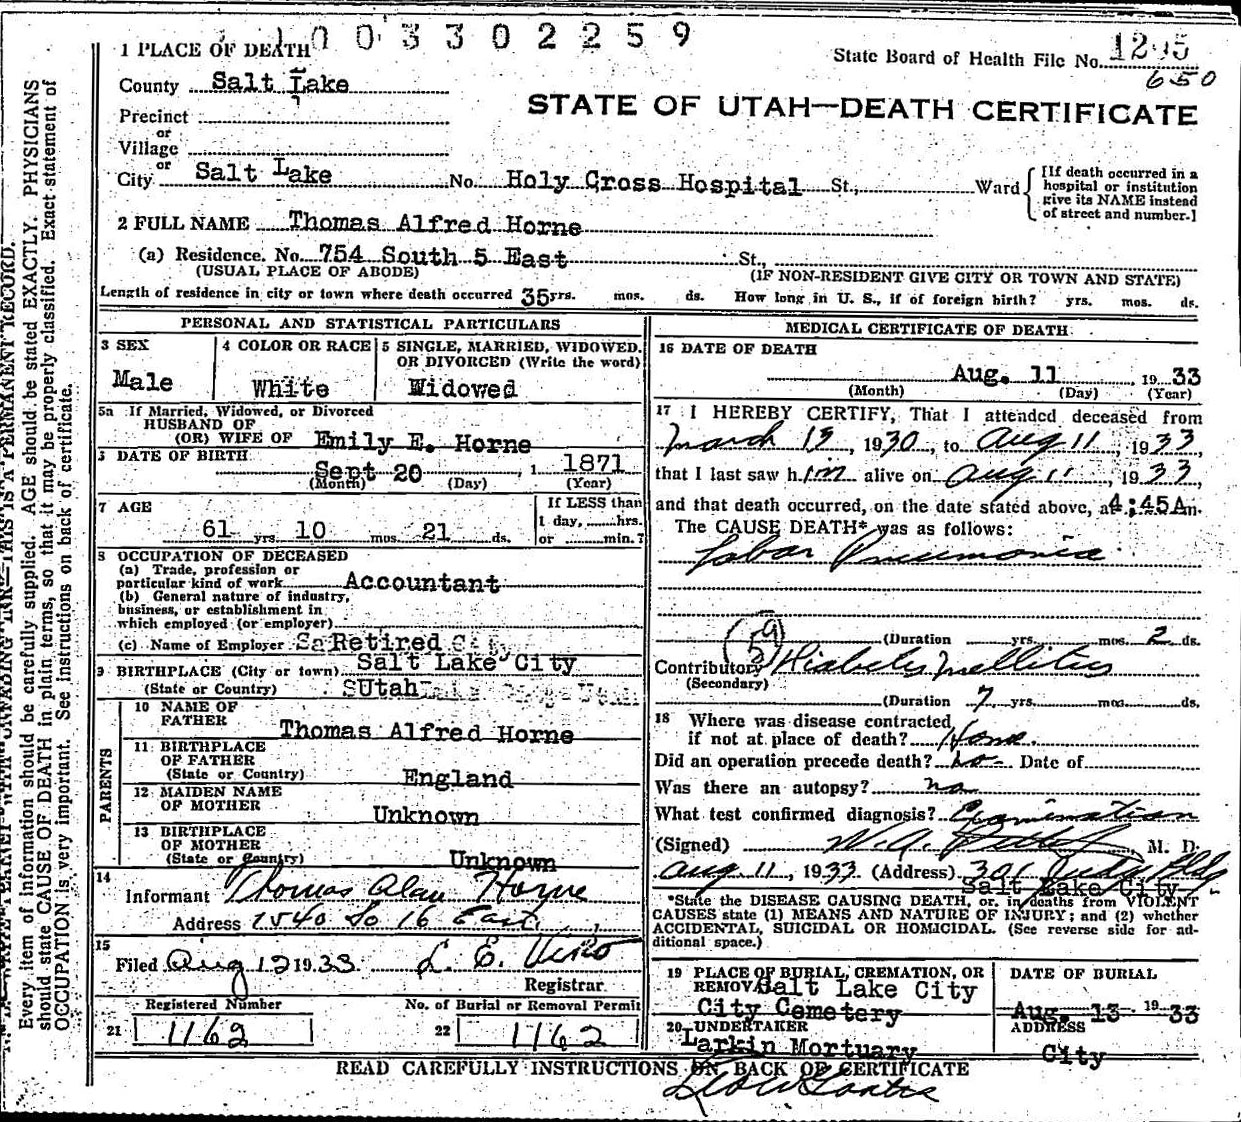 1003302259
1 PLACE OF DEATH
State Board of Health File No.
650
County Salt Lake
STATE OF UTAH—DEATH CERTIFICATE
Precinct
or
Village
or
City Salt Lake No. Holy Cross Hospital St., Ward
[If death occurred in a
hospital or institution
give its NAME instead
of street and number.]
2 FULL NAME Thomas Alfred Horne
(a) Residence. No. 754 South 5 East St.,
(USUAL PLACE OF ABODE) (IF NON-RESIDENT GIVE CITY OR TOWN AND STATE)
Length of residence in city or town where death occurred 35 yrs. mos. ds. How long in U. S., if of foreign birth? yrs. mos. ds.
PERSONAL AND STATISTICAL PARTICULARS
3 SEX
Male
4 COLOR OR RACE
White
5 SINGLE, MARRIED, WIDOWED,
OR DIVORCED (Write the word)
Widowed
5a If Married, Widowed, or Divorced
HUSBAND OF
(OR) WIFE OF Emily E. Horne
DATE OF BIRTH
Sept 20, 1871
(Month) (Day) (Year)
7 AGE
61 yrs. 10 mos. 21 ds.
If LESS than
1 day, hrs.
or min.?
8 OCCUPATION OF DECEASED
(a) Trade, profession or
particular kind of work Accountant
(b) General nature of industry,
business, or establishment in
which employed (or employer)
(c) Name of Employer Retired
9 BIRTHPLACE (City or town) Salt Lake City
(State or Country) Utah
PARENTS
10 NAME OF
FATHER
Thomas Alfred Horne
11 BIRTHPLACE
OF FATHER
(State or Country) England
12 MAIDEN NAME
OF MOTHER
Unknown
13 BIRTHPLACE
OF MOTHER
(State or Country) Unknown
14
Informant Thomas Alan Horne
Address 1540 So 16 East
15
Filed Aug 12 1933 L. E. Viko
Registrar.
Registered Number No. of Burial or Removal Permit
21 1162 22 1162
MEDICAL CERTIFICATE OF DEATH
16 DATE OF DEATH
Aug. 11, 1933
(Month) (Day) (Year)
17 I HEREBY CERTIFY, That I attended deceased from
March 13, 1930, to Aug 11, 1933,
that I last saw him alive on Aug 11, 1933,
and that death occurred, on the date stated above, at 4:45A m.
The CAUSE DEATH* was as follows:
Lobar Pneumonia
59
(Duration yrs. mos. 2 ds.
Contributory Diabetes Mellitus
(Secondary)
(Duration 7 yrs. mos. ds.
18 Where was disease contracted
if not at place of death? Home.
Did an operation precede death? no Date of
Was there an autopsy? no
What test confirmed diagnosis? Examination
(Signed) W. A. M. D.
Aug 11, 1933 (Address) 301 Judge Bldg
Salt Lake City
*State the DISEASE CAUSING DEATH, or in deaths from VIOLENT
CAUSES state (1) MEANS AND NATURE OF INJURY; and (2) whether
ACCIDENTAL, SUICIDAL OR HOMICIDAL. (See reverse side for ad-
ditional space.)
19 PLACE OF BURIAL, CREMATION, OR
REMOVAL Salt Lake City
City Cemetery
DATE OF BURIAL
Aug. 13 1933
20 UNDERTAKER
Larkin Mortuary
ADDRESS
City
READ CAREFULLY INSTRUCTIONS ON BACK OF CERTIFICATE
Every item of information should be carefully supplied. AGE should be stated EXACTLY. PHYSICIANS
should state CAUSE OF DEATH in plain terms, so that it may be properly classified. Exact statement of
OCCUPATION is very important. See instructions on back of certificate.